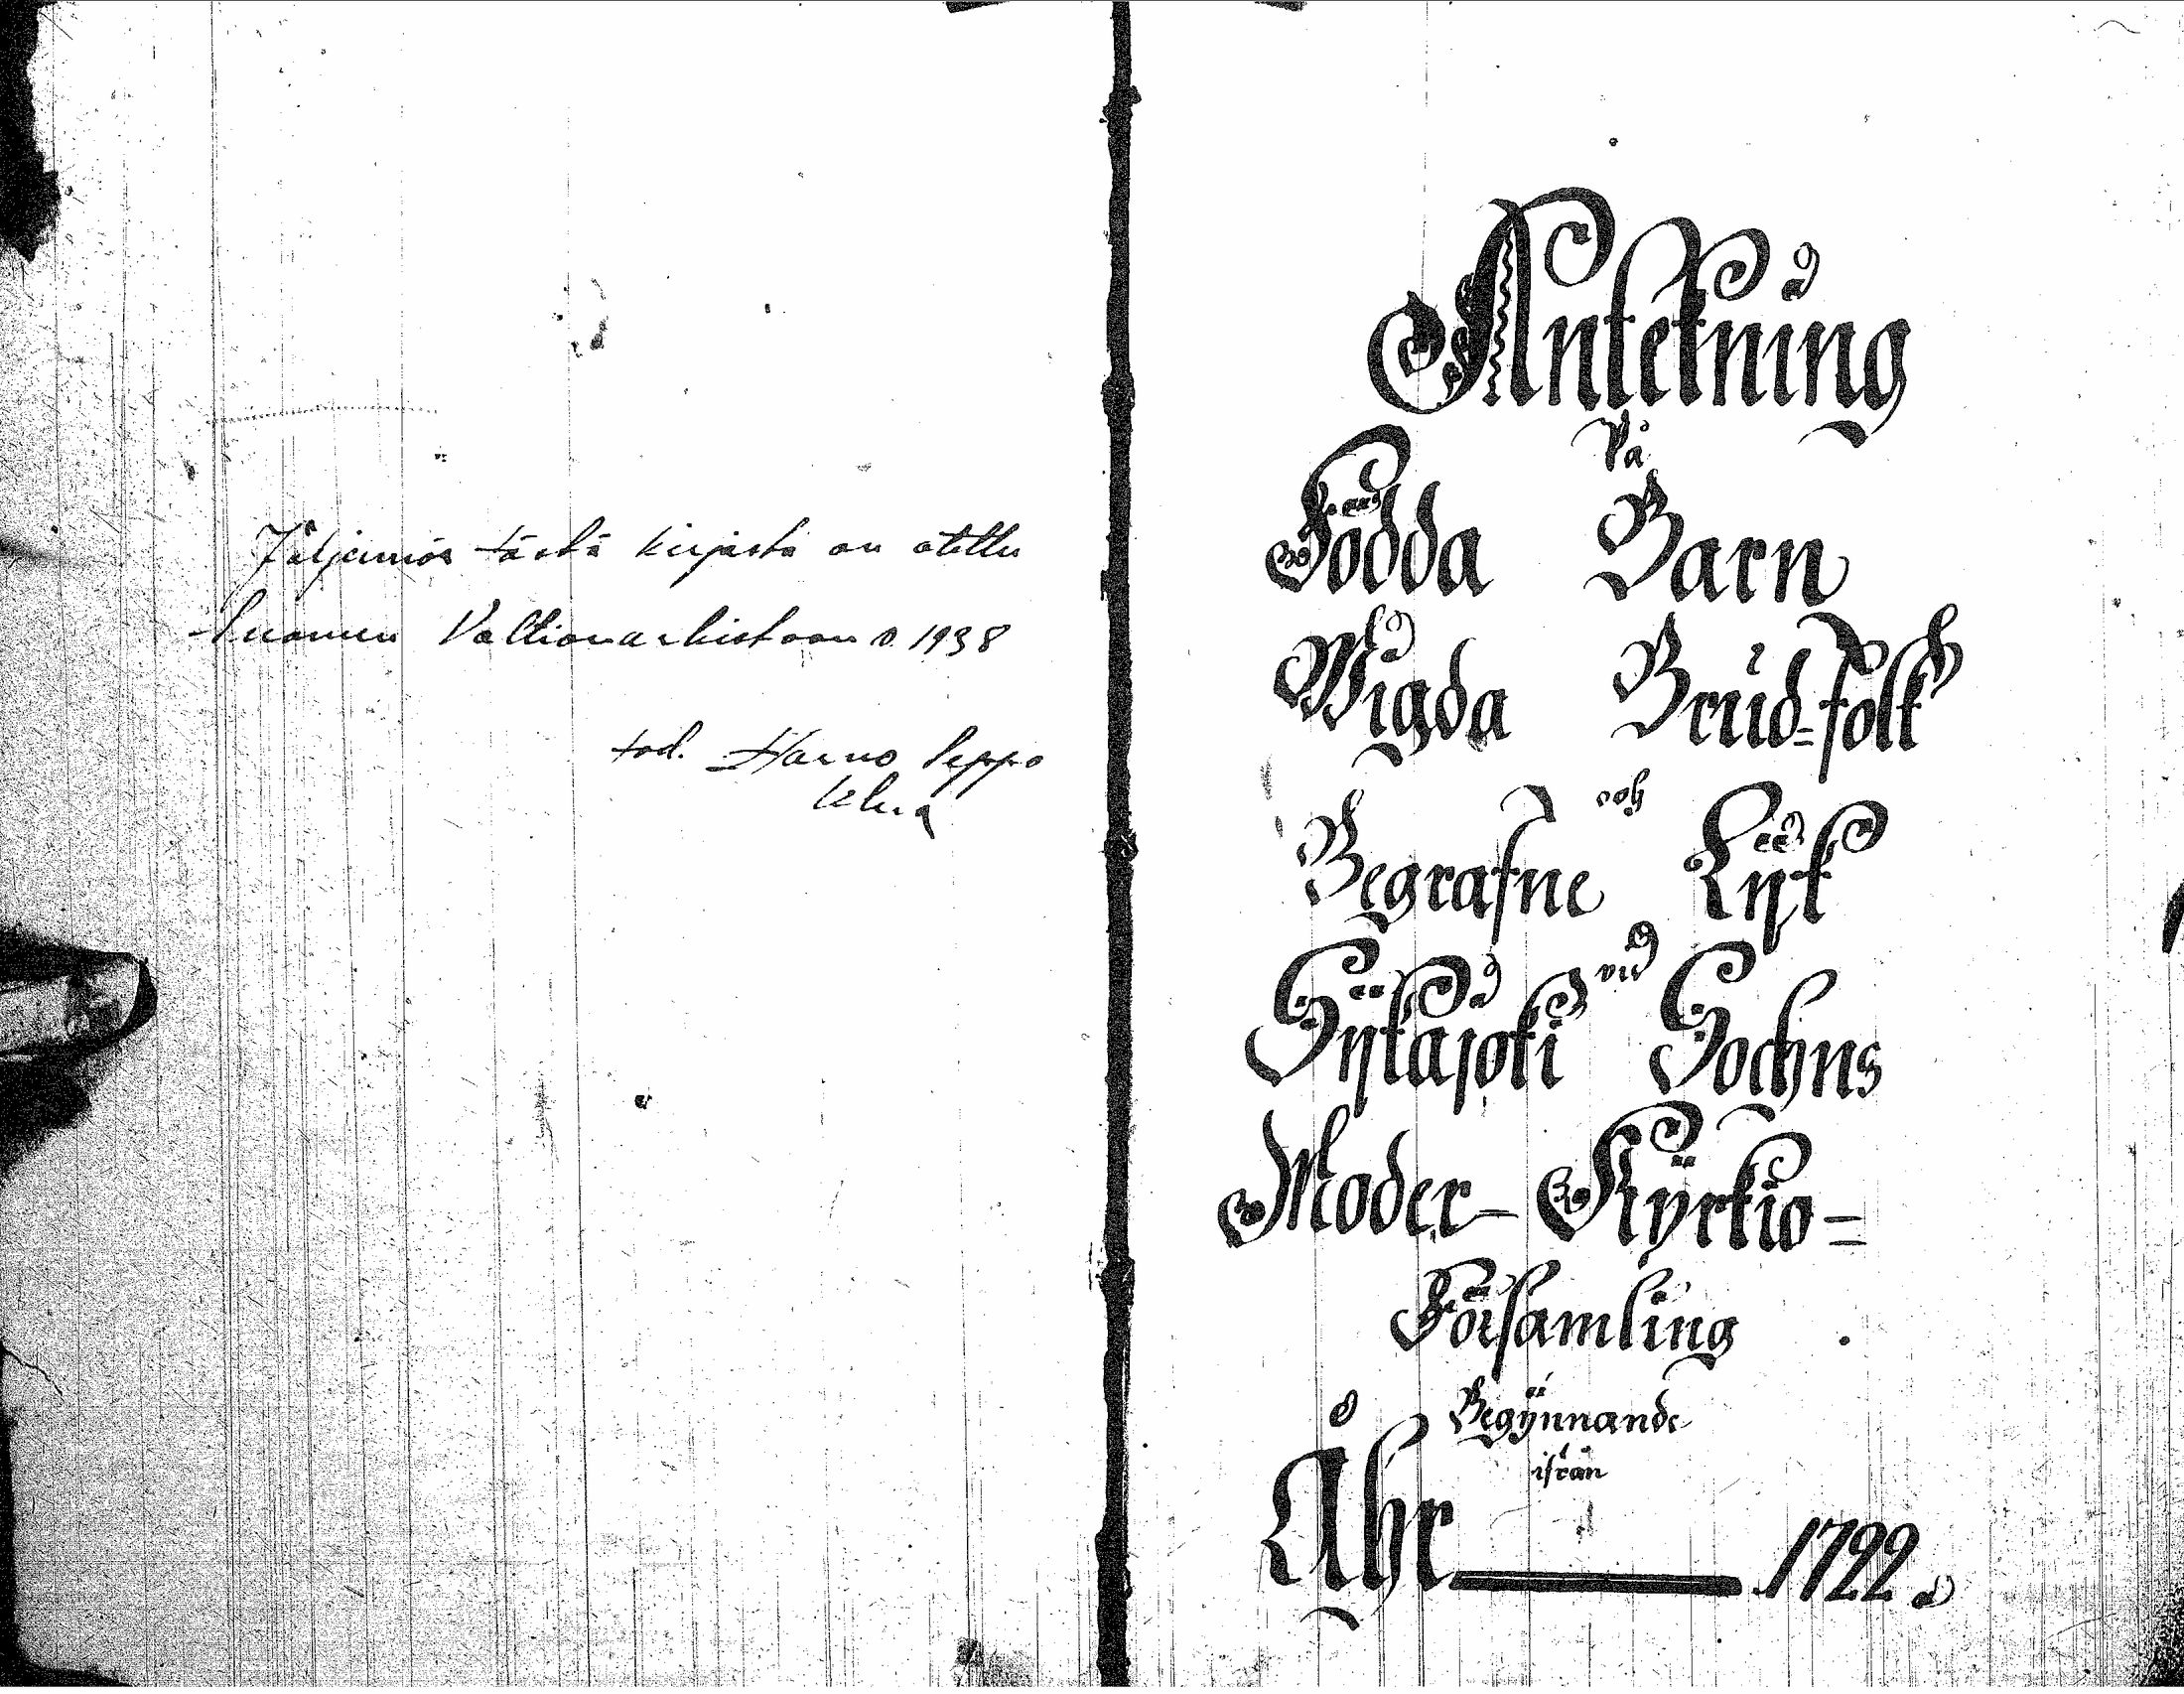 Jäljennös tästä kirjasta on otettu
Suomen Valtionarkistoon v. 1938
tod. Harno Seppo
Anteknīng
På
Födda Barn
Wigda Brud=folk
och
Begrafne Lijk
vid
Sijkajoki Sochns
Moder- Kyrkio=
Församling
Begynnande
ifrån
Åhr 1722.